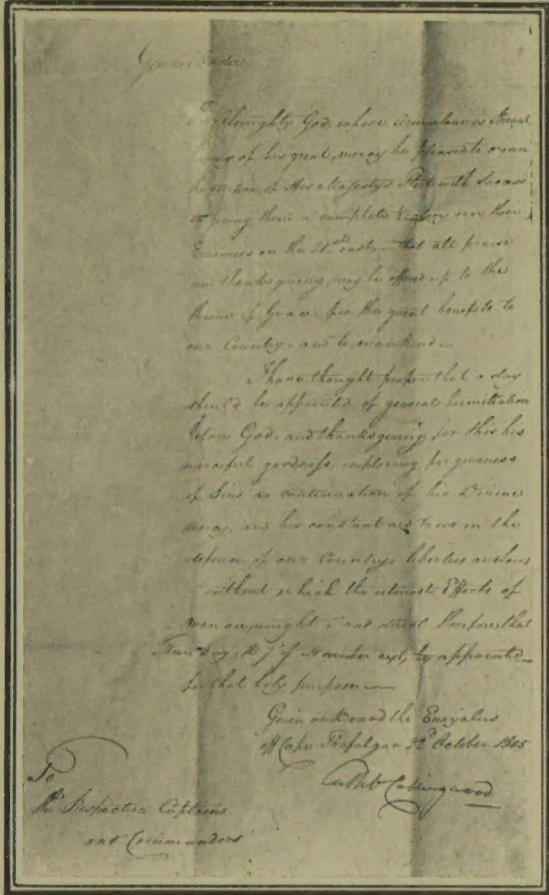 General Order
Almighty God, whose arm alone is Strength
of his great mercy has pleased to crown
the exertion of His Majesty's Fleet with Success
in giving them a complete Victory over their
Enemies on the 21st inst, that all praise
and thanksgiving may be offered up to the
throne of Grace for the great benefits to
our Country, and to mankind—
I have thought proper that a day
should be appointed of general humiliation
before God, and thanksgiving for this his
merciful goodness, imploring forgiveness
of Sins, a continuation of his Divine
mercy, and his constant aid to us in the
defence of our Country's liberties and laws
without which the utmost Efforts of
man are nought; and direct therefore that
the 7th of November next, be appointed
for that holy purpose—
Given on Board the Euryalus
off Cape Trafalgar 22d October 1805
Cuthb Collingwood
To
the Respective Captains
and Commanders